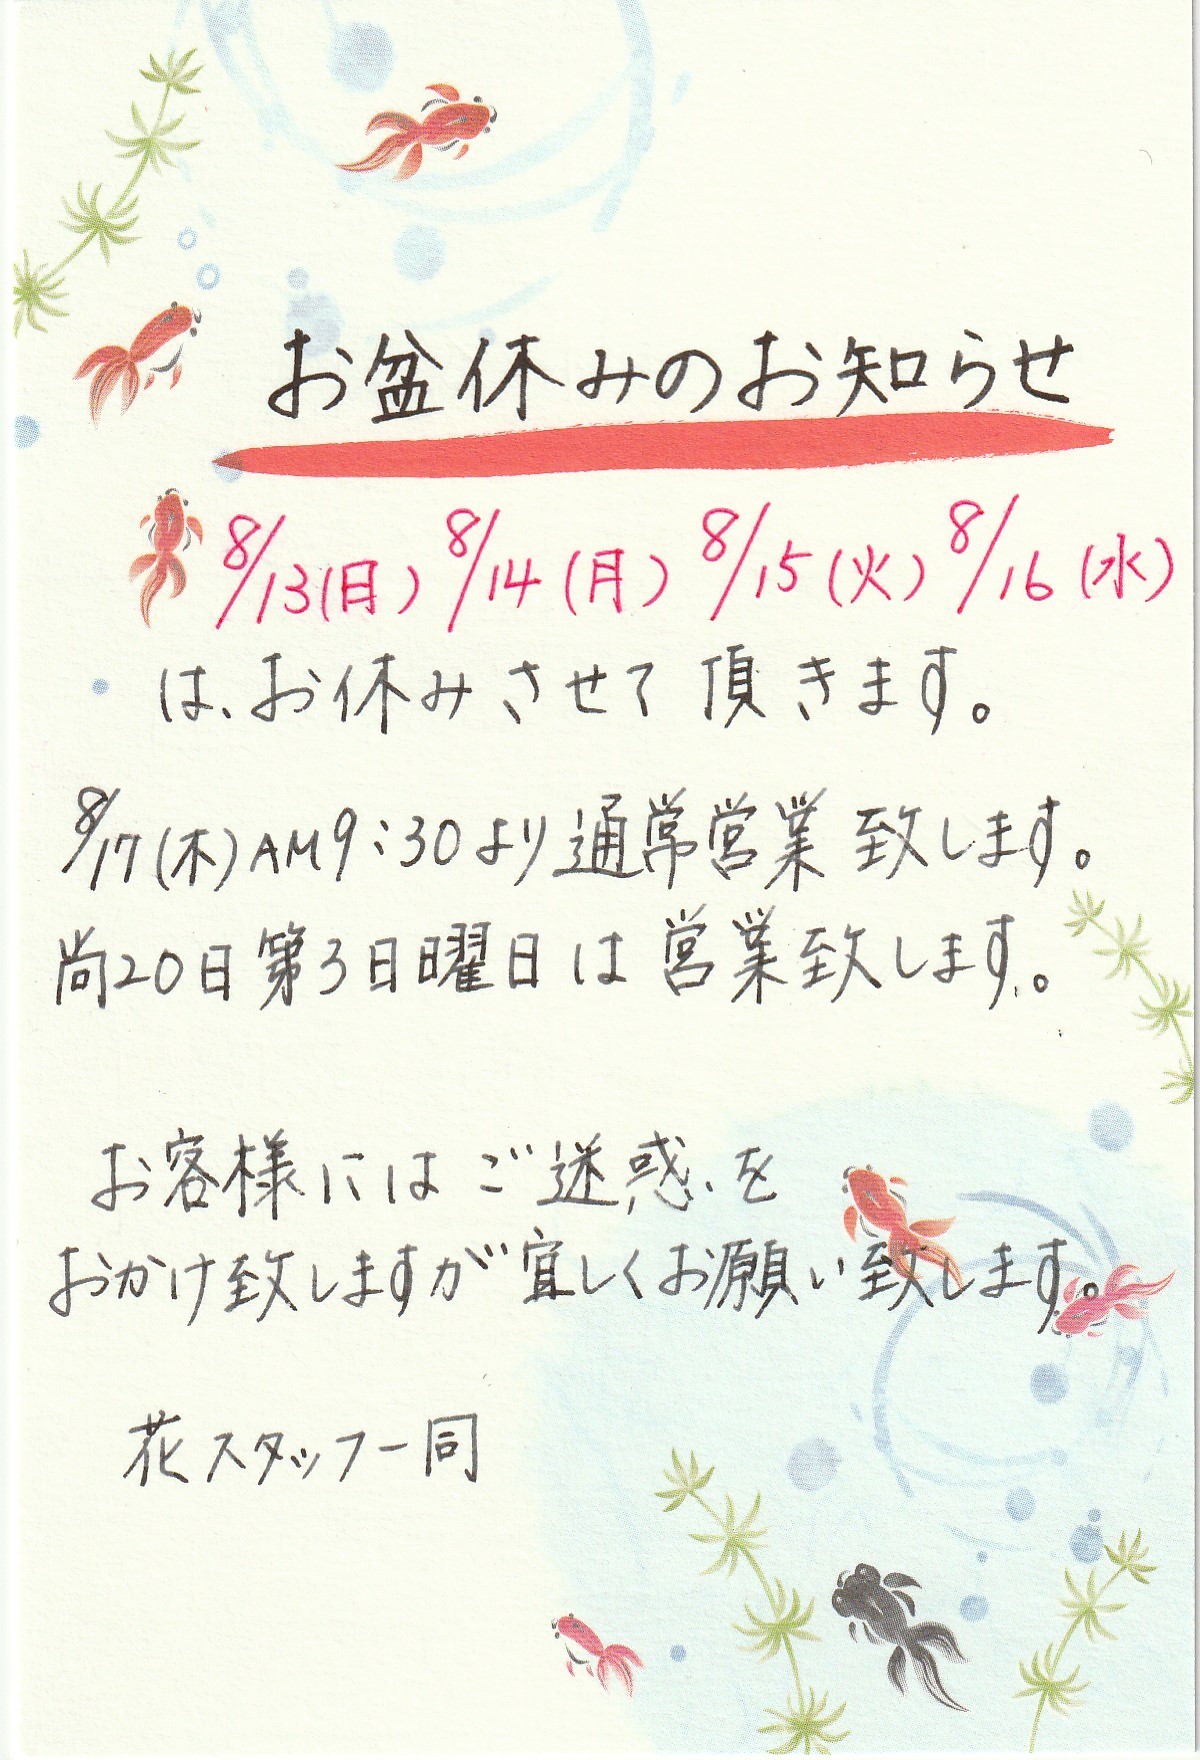 お盆休みのお知らせ
8/13(日) 8/14(月) 8/15(火) 8/16(水)
は、お休みさせて頂きます。
8/17(木)AM9:30より通常営業致します。
尚20日第3日曜日は営業致します。
お客様にはご迷惑を
おかけ致しますが宜しくお願い致します。
花スタッフ一同